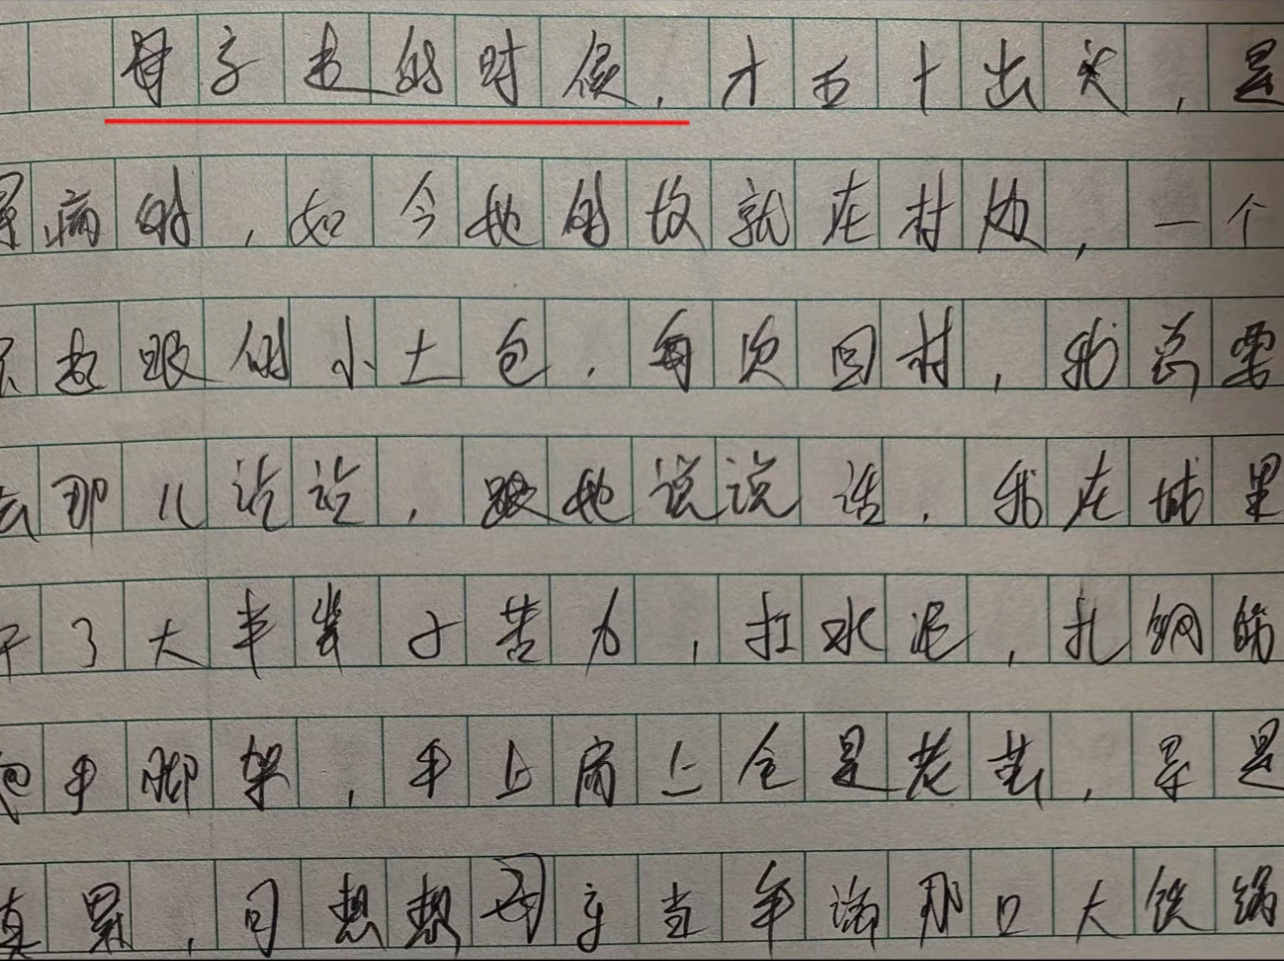 母亲走的时候，才五十出头，是
累病的，如今她的坟就在村边，一个
不起眼的小土包，每次回村，我总要
去那儿站站，跟她说说话，我在城里
干了大半辈子苦力，扛水泥，扎钢筋
爬脚架，手上肩上全是老茧，累是
真累，可想想母亲当年满那口大铁锅